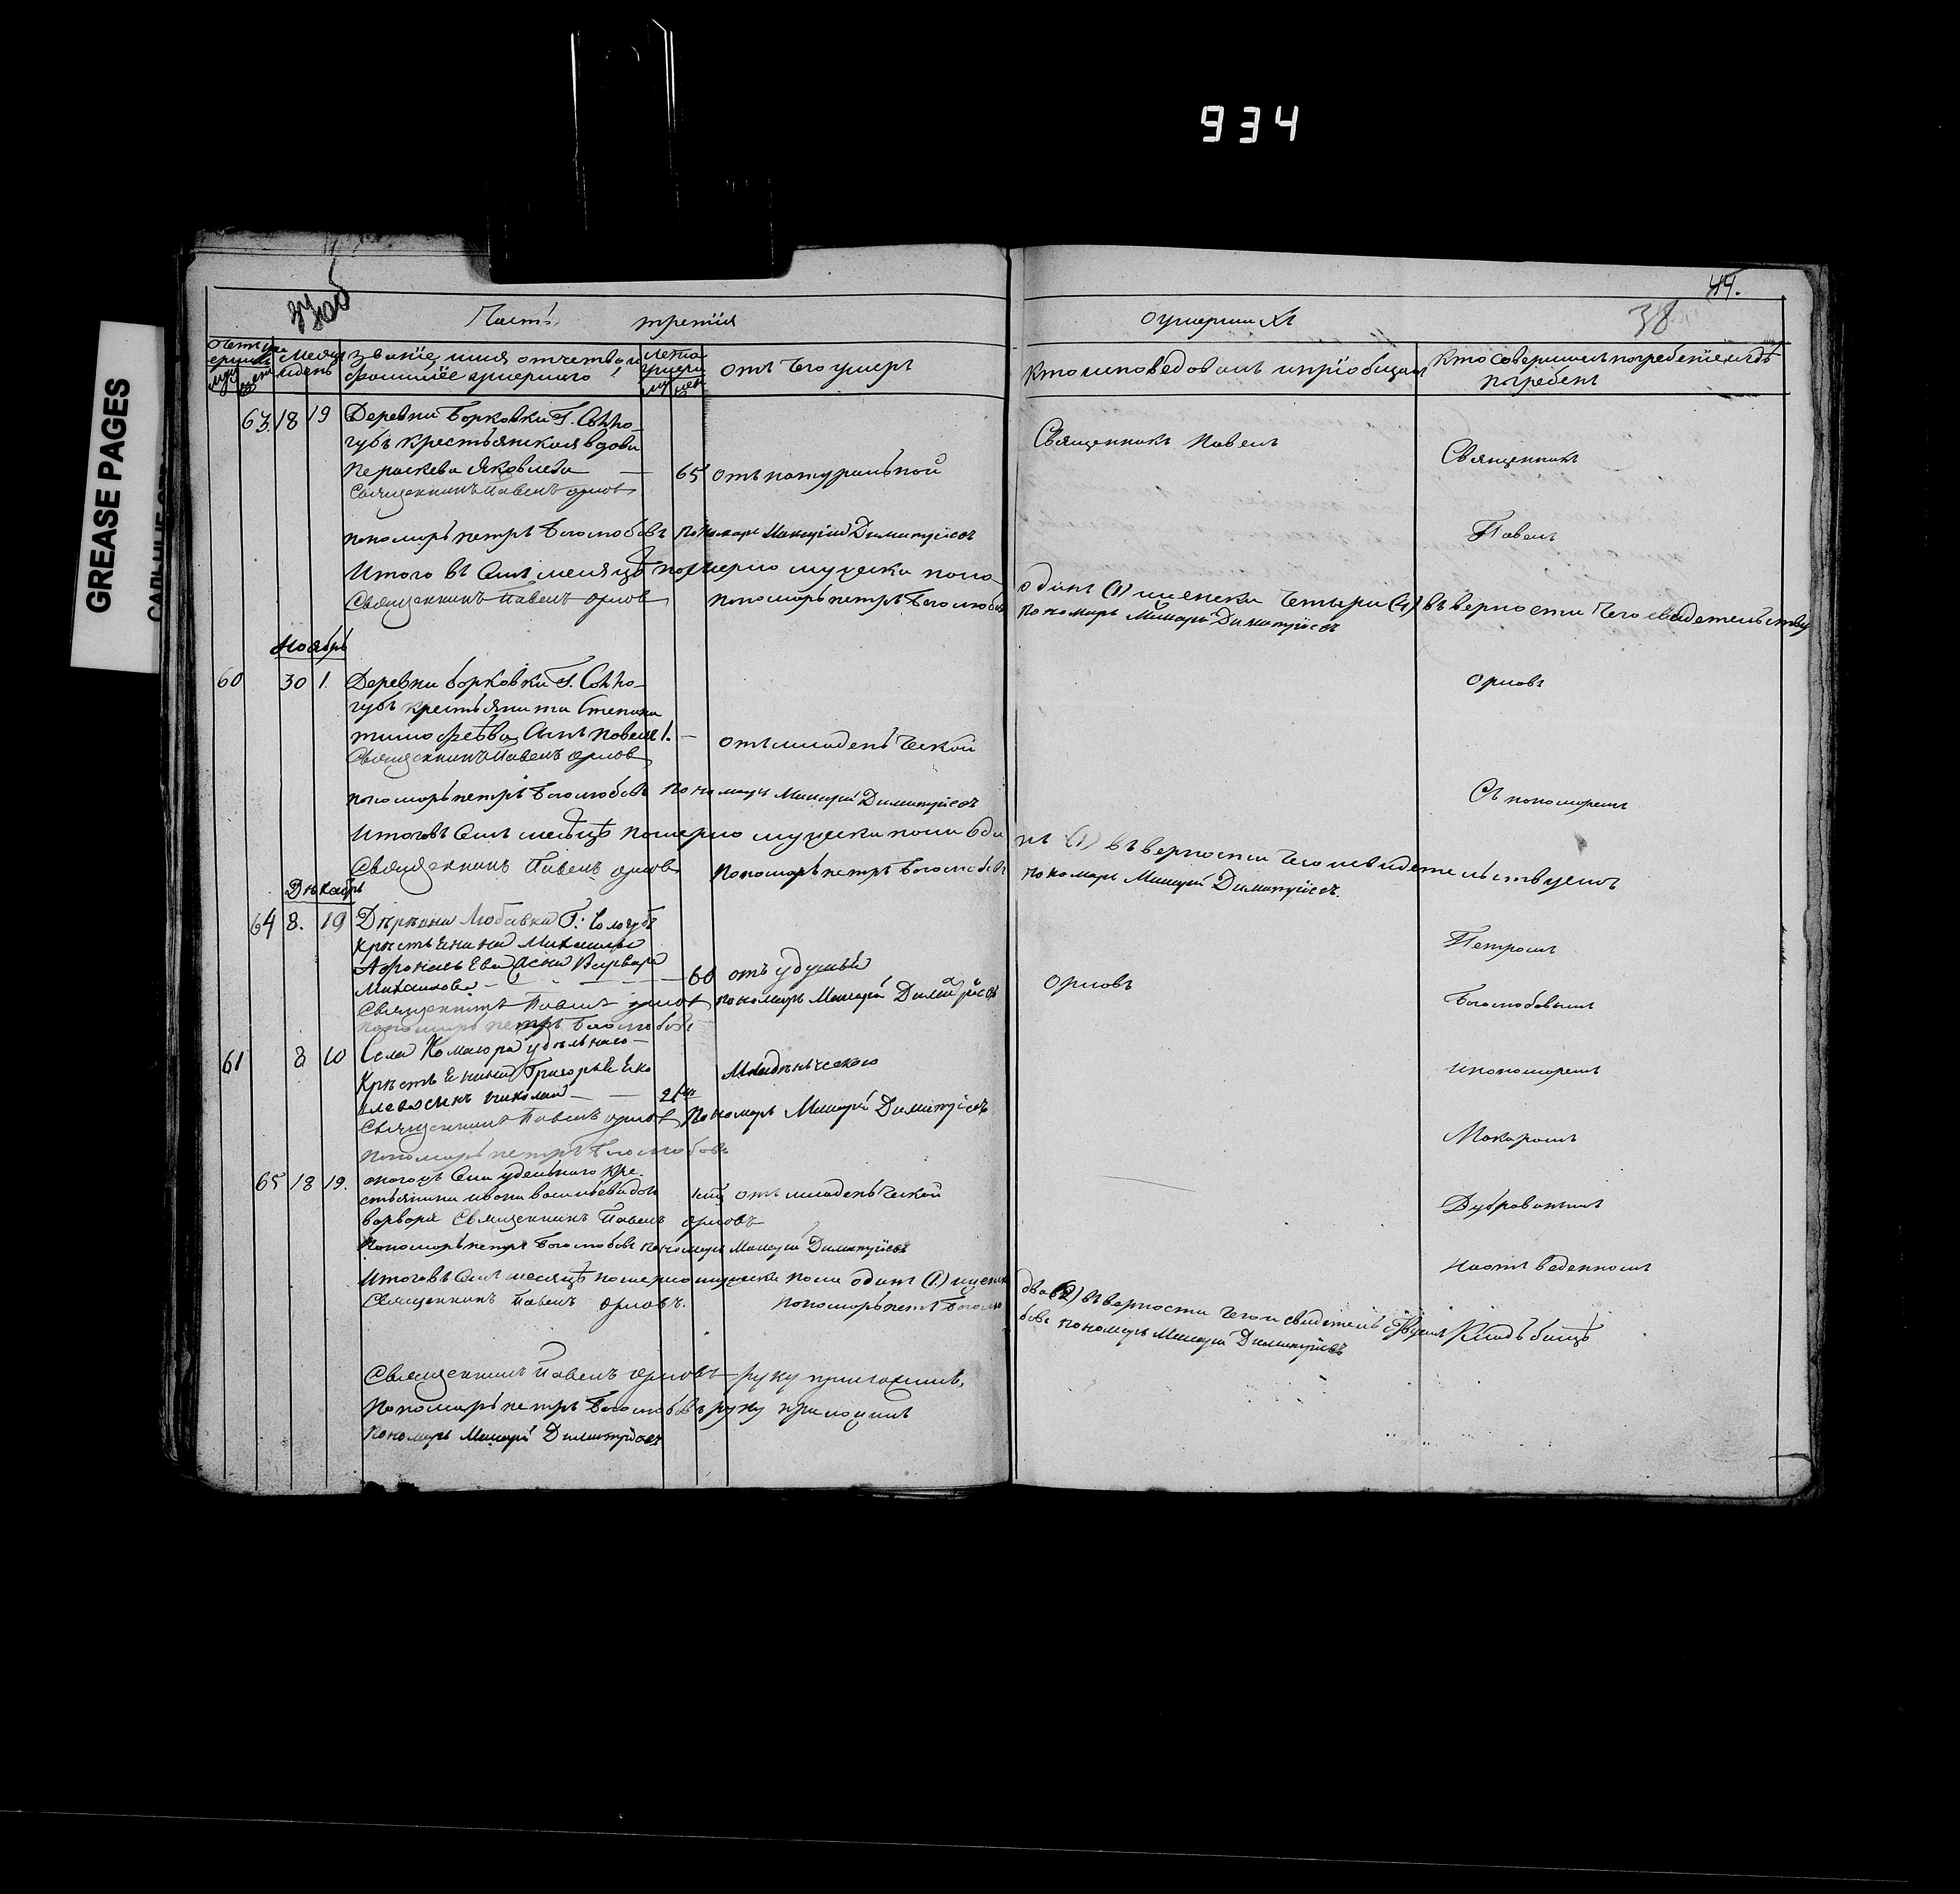 934
GREASE PAGES
44.
38
Часть третія
о умершихъ
Месяцъ и день
званіе, имя отчество, и фамиліе умершаго
Лета умерш
отъ чего умеръ
Кто исповедовалъ и пріобщалъ
Кто совершалъ погребеніе и где погребенъ
63. 18 19 Деревни Борковки Г. Солло-
губъ крестьянская вдова
Параскева Яковлева — 65 отъ натуральной
Священникъ Павелъ
Священникъ
Священникъ Павелъ Орловъ
пономарь петръ Боголюбовъ пономарь Макарій Димитріевъ
Павелъ
Итого въ семъ месяцѣ померло мужеска пола
одинъ (1) женска четыри (4) въ верности чего свидетельству
Священникъ Павелъ Орловъ пономарь петръ Боголюбов
пономарь Макарій Димитріевъ
Ноябрь
60 30 1. Деревни Борковки Г. Солло-
губъ крестьянина Степана
тимофеева сынъ Павелъ 1. — отъ младенческой
Орловъ
Священникъ Павелъ Орловъ
пономарь петръ Боголюбовъ пономарь Макарій Димитріевъ
Съ пономаремъ
Итого въ семъ месяцѣ померло мужеска пола оди
нъ (1) въ верности чего и свидетельствуемъ
Священникъ Павелъ Орловъ пономарь петръ Боголюбовъ
пономарь Макарій Димитріевъ.
Декабрь
64 8. 19 Деревни Любавки Г: Сологубъ
крестьенина Михаила
Афонасьева жена Варвара
Михаилова — 60 отъ удушья
Орловъ
Петромъ
Священникъ Павелъ Орловъ пономарь Макарій Димитріевъ
пономарь петръ Боголюбовъ
Боголюбовымъ
61 8 10 Села удельнаго
Крестьенина Григорья
сынъ Николай — Младенческою
и пономаремъ
Священникъ Павелъ Орловъ пономарь Макарій Димитріевъ
пономарь петръ Боголюбовъ
Макаромъ
65 18 19. оногожъ села удельнаго кре-
стьянина ивана васильева дочь
варвара отъ младенческой
Священникъ Павелъ Орловъ
Дубровинымъ
пономарь петръ Боголюбовъ пономарь Макарій Димитріевъ
На отведенномъ
Итого въ семъ месяцѣ померло мужеска пола одинъ (1) женска
два (2) въ верности чего и свидетельствуемъ
Кладъбищѣ
Священникъ Павелъ Орловъ. пономарь петръ Боголю
бовъ пономарь Макарій Димитріевъ
Священникъ Павелъ Орловъ руку приложилъ,
пономарь петръ Боголюбовъ руку приложилъ
пономарь Макарій Димитріевъ